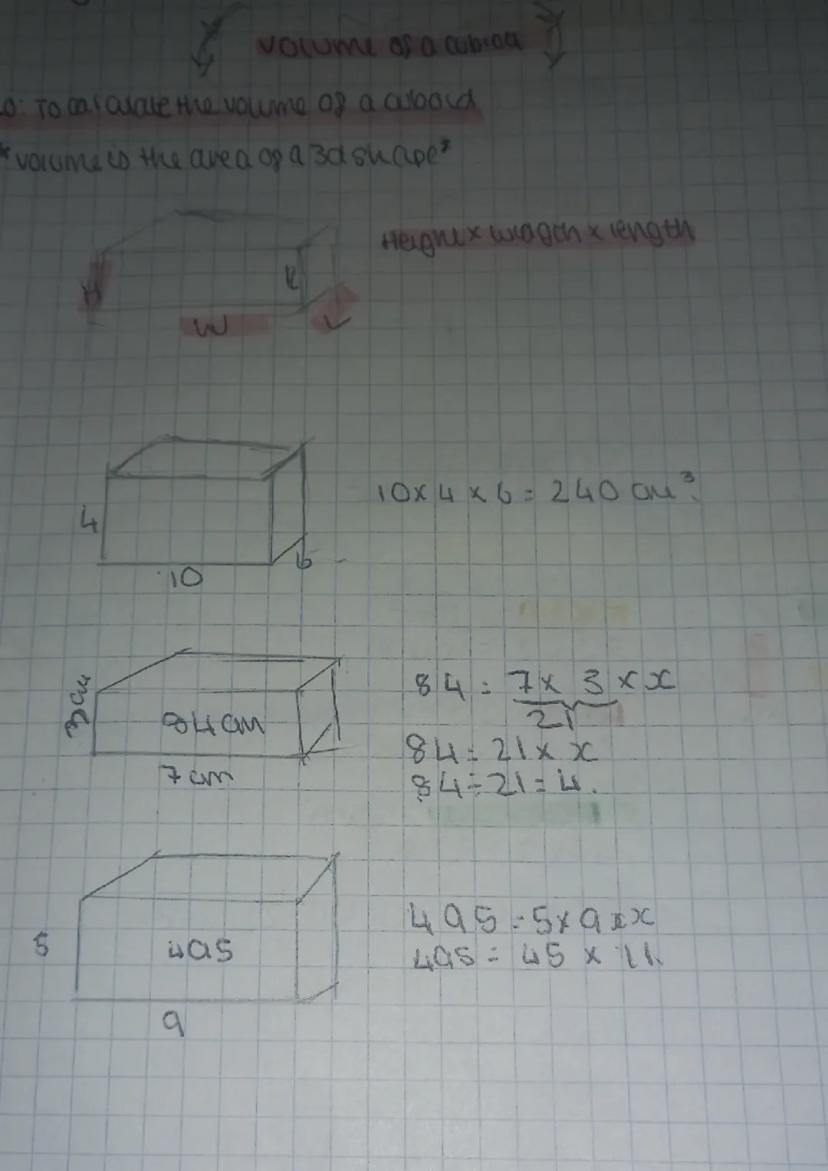 volume of a cuboid
O: To calculate the volume of a cuboid
*volume is the area of a 3d shape*
Height x width x length
H
L
W
L
10 x 4 x 6 = 240 cm³.
4
10
6
3cm
84cm
7cm
84 = 7 x 3 x x
21
84 = 21 x x
84 ÷ 21 = 4.
5
495
9
495 = 5 x 9 x x
495 = 45 x 11.